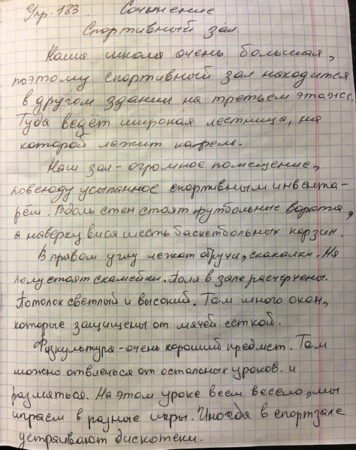 Упр. 183 Сочинение
Спортивный зал.
Наша школа очень большая,
поэтому спортивный зал находится
в другом здании на третьем этаже.
Туда ведёт широкая лестница, на
которой лежит кафем.
Наш зал - огромное помещение,
повсюду усыпанное спортивным инвента-
рём. Вдоль стен стоят футбольные ворота,
а наверху висят шесть баскетбольных корзин.
В правом углу лежат обручи, скакалки. На
полу стоят скамейки. Поля в зале расчерчены.
Потолок светлый и высокий. Там много окон,
которые защищены от мячей сеткой.
Физкультура - очень хороший предмет. Там
можно отвлечься от остальных уроков и
размяться. На этом уроке всем весело, мы
играем в разные игры. Иногда в спортзале
устраивают дискотеки.